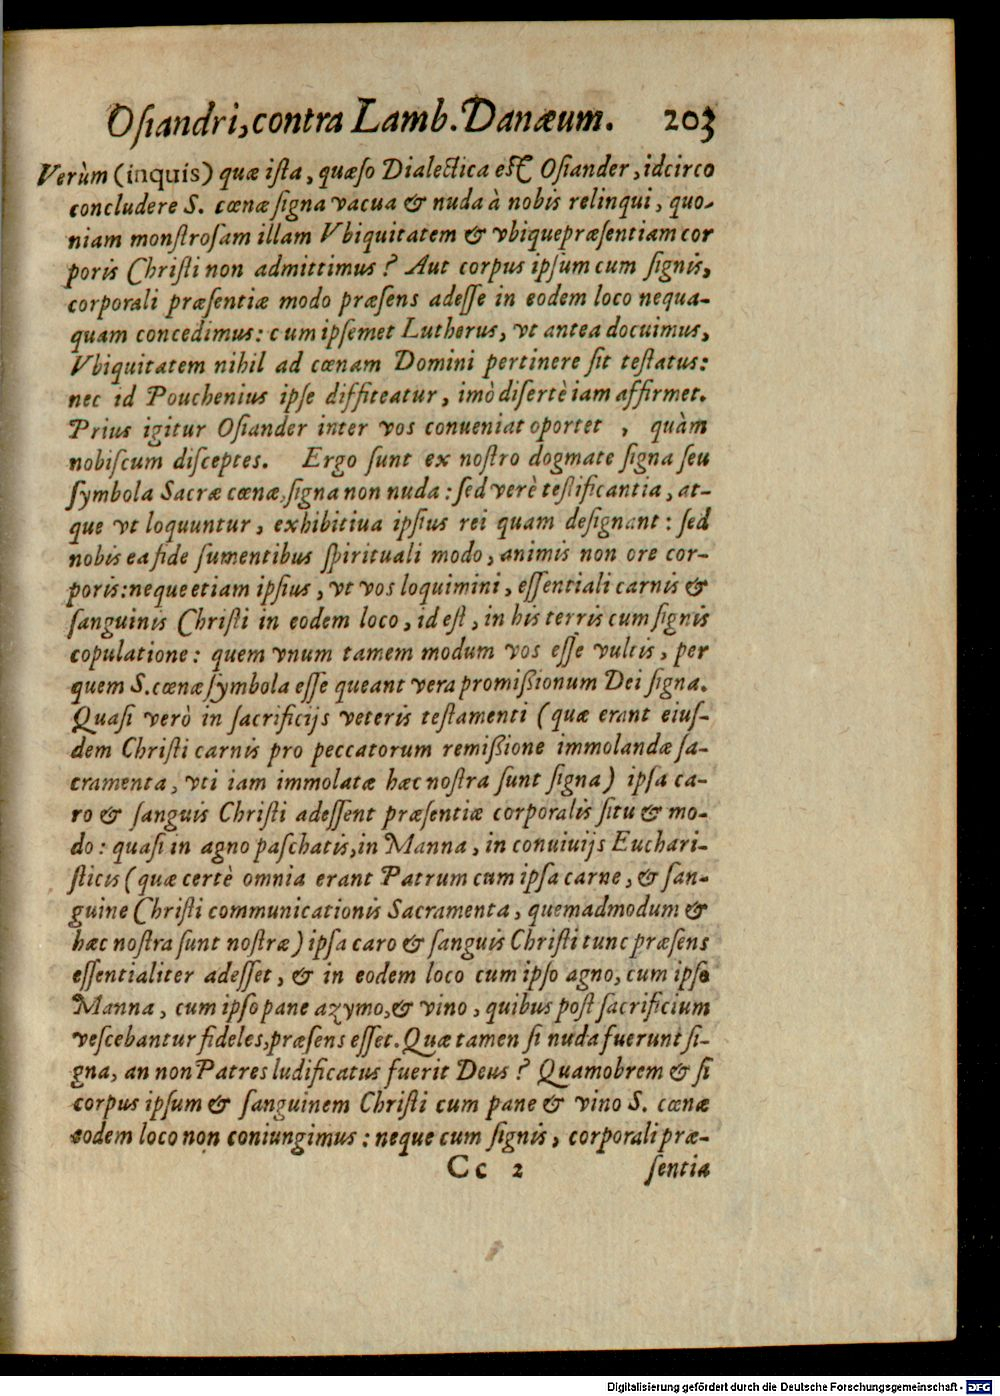 Osiandri, contra Lamb. Danæum. 203
Verùm (inquis) quæ ista, quæso Dialectica est Osiander, idcirco
concludere S. cœnæ signa vacua & nuda à nobis relinqui, quo-
niam monstrosam illam Vbiquitatem & vbiquepræsentiam cor
poris Christi non admittimus? Aut corpus ipsum cum signis,
corporali præsentiæ modo præsens adesse in eodem loco nequa-
quam concedimus: cum ipsemet Lutherus, vt antea docuimus,
Vbiquitatem nihil ad cœnam Domini pertinere sit testatus:
nec id Pouchenius ipse diffiteatur, imò disertè iam affirmet.
Prius igitur Osiander inter vos conueniat oportet, quàm
nobiscum disceptes. Ergo sunt ex nostro dogmate signa seu
symbola Sacræ cœnæ, signa non nuda: sed verè testificantia, at-
que vt loquuntur, exhibitiua ipsius rei quam designant: sed
nobis ea fide sumentibus spirituali modo, animis non ore cor-
poris: neque etiam ipsius, vt vos loquimini, essentiali carnis &
sanguinis Christi in eodem loco, id est, in his terris cum signis
copulatione: quem vnum tamem modum vos esse vultis, per
quem S. cœnæ symbola esse queant vera promißionum Dei signa.
Quasi verò in sacrificijs veteris testamenti (quæ erant eius-
dem Christi carnis pro peccatorum remißione immolandæ sa-
cramenta, vti iam immolatæ hæc nostra sunt signa) ipsa ca-
ro & sanguis Christi adessent præsentiæ corporalis situ & mo-
do: quasi in agno paschatis, in Manna, in conuiuijs Euchari-
sticis (quæ certè omnia erant Patrum cum ipsa carne, & san-
guine Christi communicationis Sacramenta, quemadmodum &
hæc nostra sunt nostræ) ipsa caro & sanguis Christi tunc præsens
essentialiter adesset, & in eodem loco cum ipso agno, cum ipso
Manna, cum ipso pane azymo, & vino, quibus post sacrificium
vescebantur fideles, præsens esset. Quæ tamen si nuda fuerunt si-
gna, an non Patres ludificatus fuerit Deus? Quamobrem & si
corpus ipsum & sanguinem Christi cum pane & vino S. cœnæ
eodem loco non coniungimus: neque cum signis, corporali præ-
Cc 2 sentia
Digitalisierung gefördert durch die Deutsche Forschungsgemeinschaft - DFG